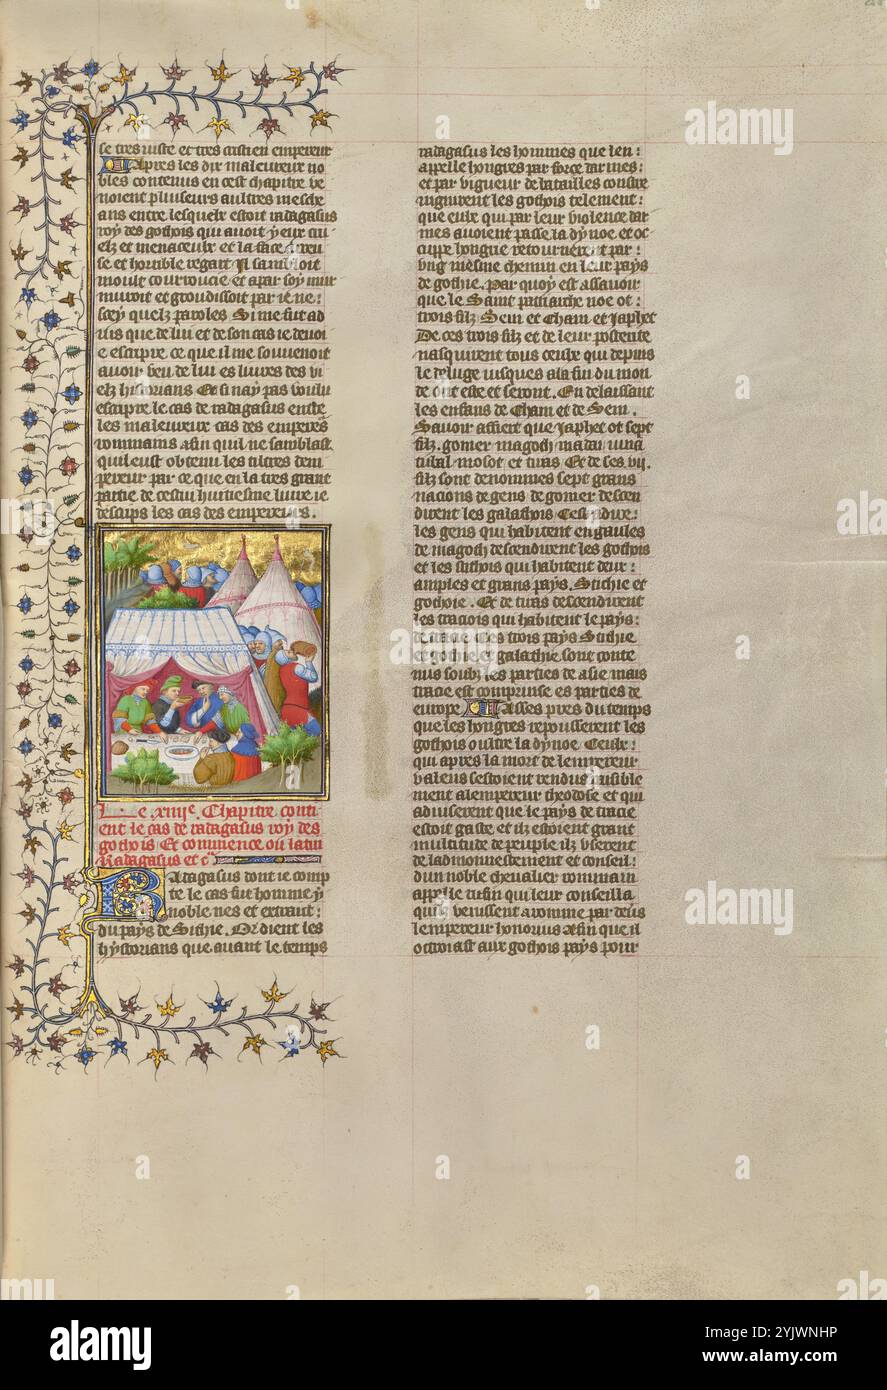 se tres iuste et tres crestien empereur
Apres les dix maleureux no
bles contenus en cest chapitre ve
noient pluseurs aultres mesche
ans entre lesquelx estoit radagasus
roy des gothois qui auoit yeux cru
elz et menaceux et la face
se et horrible regart Il sambloit
moult courroucie et a par soy mur
muroit et groudissoit par ie ne:
scey quelz paroles Si me fut ad
uis que de lui et de son cas ie deuoi
e escripre ce que il me souuenoit
auoir veu de lui es liures des vi
elz historians Et si nay pas voulu
escripre le cas de radagasus entre
les maleureux cas des emperers
rommains afin quil ne samblast
quil eust obtenu les tiltres dem
pereur par ce que en la tres grant
partie de cestui huitiesme liure ie
descrips les cas des empereurs.
Le xiiiie. Chapitre conti
ent le cas de radagasus roy des
gothois Et commence ou latin
Radagasus et c
Radagasus dont ie comp
te le cas fut homme
noble nes et extraut:
du pays de Sichie. Or dient les
hystorians que auant le temps
radagasus les hommes que len:
appelle hongres par force darmes:
et par vigueur de batailles contre
les gothois telement:
que ceulx qui par leur violence dar
mes auoient passe la dynoe et oc
cuppe hongrie retournerent par:
vng mesme chemin en leur pays
de gothie. Par quoy est assauoir
que le Saint patriarche noe ot:
trois filz Sem et Cham et Japhet
De ces trois filz et de leur posterite
nasquirent tous ceulx qui depuis
le deluge iusques a la fin du mon
de ont este et seront. En delaissant
les enfans de Cham et de Sem.
Sauoir affiert que Japhet ot sept
filz. gomer magoth madai iuna
tubal mosot et tiras Et de ses. vij.
filz sont denommes sept grans
nacions de gens de gomer descen
dirent les galathois Cest adire:
les gens qui habitent en gaules
de magoth descendirent les gothois
et les sithois qui habitent deux:
amples et grans pays. Sithie et
gothie. Et de tiras descendirent
les tracois qui habitent le pays:
de tracie Ces trois pays Sithie
et gothie et galathie sont conte
nus soubz les parties de asie mais
tracie est comprinse es parties de
europe Asses pres du temps
que les hongres repousserent les
gothois oultre la dynoe Ceulx:
qui apres la mort de lempereur
valens sestoient rendus paisible
ment a lempereur theodose et qui
aduiserent que le pays de tracie
estoit gaste et ilz estoient grant
multitude de peuple ilz vserent
de ladmonnestement et conseil:
dun noble cheualier rommain
appelle rufin qui leur conseilla
quilz venissent a romme par deuers
lempereur honorius afin que il
octroiast aux gothois pays pour
alamy
Image ID: 2YJWNHP
www.alamy.com